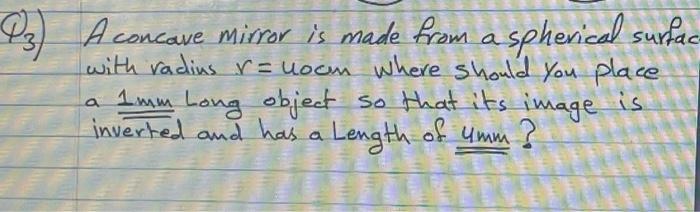 Q3) A concave mirror is made from a spherical surfac
with radius r = 40cm where should you place
a 1mm Long object so that its image is
inverted and has a Length of 4mm ?